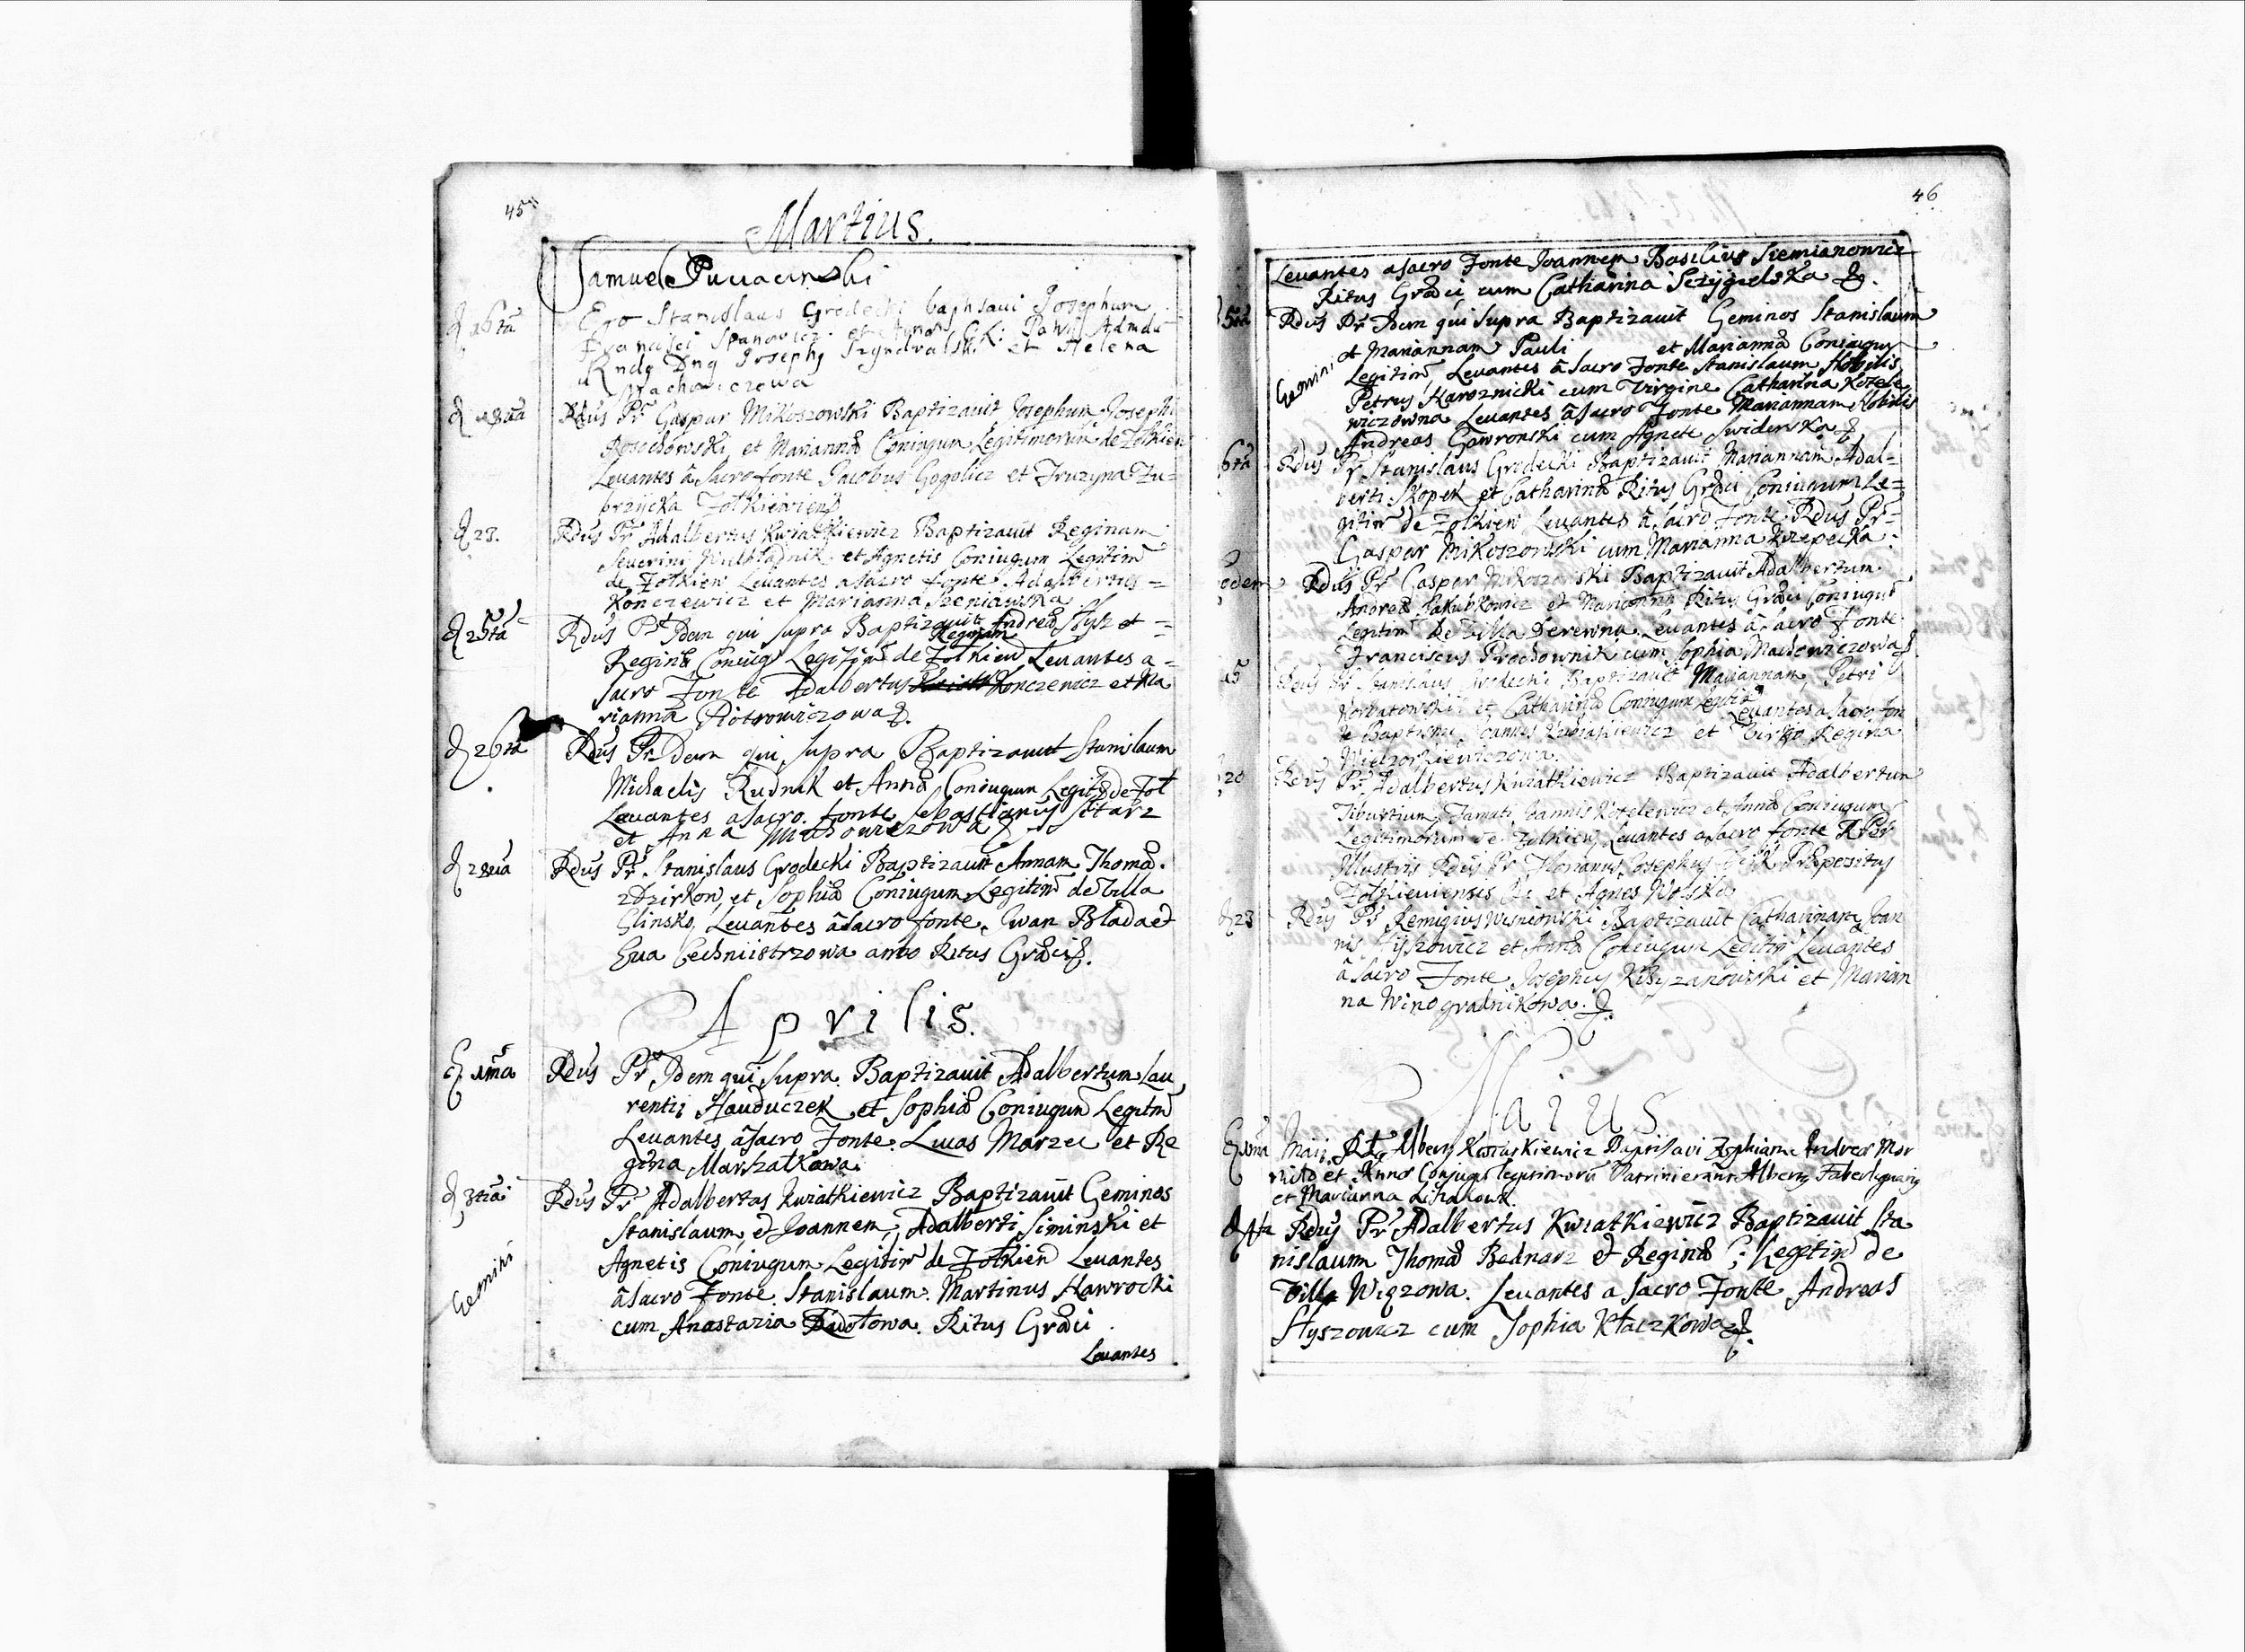 45
Martius.
Samuel
d 16ta Ego Stanislaus Grodecki baptisavi Josephum
Francisci Spanowicz et Annæ C.
Josephus et Helena
Machowiczowa
Rdus Pr Gaspar Mikoszowski Baptizavit Josephum Josephi
et Mariannæ Coniugum Legitimorum de Zolkiew
Levantes â Sacro fonte Jacobus Gogolicz et Fruzyna Zu=
brzycka Zolkiewien
d 23. Rdus Pr Adalbertus Kwiatkiewicz Baptizavit Reginam
Severini et Agnetis Coniugum Legitim
de Zolkiew Levantes a Sacro fonte Adalbertus =
Konczewicz et Marianna Sieniawska
d 25ta Rdus Pr Idem qui supra Baptizavit Andreæ Hysz et =
Reginam
Reginæ Coniug Legitim de Zolkiew Levantes a =
Sacro Fonte Adalbertus Konczewicz et Ma
rianna Piotrowiczowa
d 26ta Rdus Pr Idem qui supra Baptizavit Stanislaum
Michaelis Rudnik et Annæ Coniugum Legit de Zol
Levantes a Sacro fonte Sebastianus Sitarz
et Anna Machowiczowa
d 28va Rdus Pr. Stanislaus Grodecki Baptizavit Annam Thomæ
zdzirkon et Sophiæ Coniugum Legitim de Villa
Glinsko Levantes â Sacro fonte, Iwan Blada et
Eva Cechmistrzowa ambo Ritus Græci
Aprilis.
1ma Rdus Pr Idem qui supra Baptizavit Adalbertum Lau
rentii Hayduczek et Sophiæ Coniugum Legitm
Levantes â Sacro Fonte Lucas Marzec et Re
gina Marszalkowa
d 3tia Rdus Pr Adalbertus Kwiatkiewicz Baptizavit Geminos
Stanislaum, et Joannem, Adalberti Siminski et
Gemini Agnetis Coniugum Legitim de Zolkiew Levantes
â Sacro Fonte Stanislaum. Martinus Hawrocki
cum Anastazia Ritus Græci
Levantes
46
Levantes a Sacro Fonte Joannem Basilius Siemianowicz
Ritus Græci cum Catharina
5ta Rdus Pr Idem qui supra Baptizavit Geminos Stanislaum
et Mariannam Pauli et Mariannæ Coniugum
Gemini Legitim Levantes â Sacro Fonte Stanislaum Nobilis
Petrus Karoznicki cum Virgine Catharina Kotele
wiczowna Levantes â Sacro Fonte Mariannam Nobilis
Andreas Gawronski cum Agnete Swiderska
6ta Rdus Pr Stanislaus Grodecki Baptizavit Mariannam Adal=
berti Skopek et Catharinæ Ritus Græci Coniugum Le=
gitim de Zolkiew Levantes â Sacro Fonte Rdus Pr=
Gaspar Mikoszowski cum Marianna Krzepecka
odem Rdus Pr Caspar Mikoszowski Baptizavit Adalbertum
Andreæ Jakubkowicz et Mariannæ Ritus Græci Coniugum
Legitim De Villa Derewna Levantes â Sacro Fonte
Franciscus cum Sophia Machowiczowa
15 Rdus Pr Stanislaus Grodecki Baptizavit Mariannam Petri
Korbatowski et Catharinæ Coniugum Legitim Levantes a Sacro fon
te Baptismi Joannes Kwiatkiewicz et Virgo Regina
20 Rdus Pr Adalbertus Kwiatkiewicz Baptizavit Adalbertum
Tiburtium Famati Joannis Kotelewicz et Annæ Coniugum
Legitimorum de Zolkiew Levantes a Sacro fonte
Illustris Rdus Pr Florianus Josephus Præpositus
Zolkieviensis et Agnes Wolska
d 23 Rdus Pr Remigius Wisniowski Baptizavit Catharinam Joan
nis et Annæ Coniugum Legitim Levantes
â Sacro Fonte Josephus Krzyzanowski et Marian
na Winogradnikowa.
Maius
1ma Maii Albertus Kwiatkiewicz Baptisavi Zophiam Andreæ Mor
et Annæ Conjugum legitimorum Patrini erant Albertus Faber lignarius
et Marianna
Rdus Pr Adalbertus Kwiatkiewicz Baptizavit Sta
nislaum Thomæ Bednarz et Reginæ C: Legitim de
Villa Wiązowa. Levantes a Sacro Fonte Andreas
Hyszowicz cum Sophia Kłaczkowa